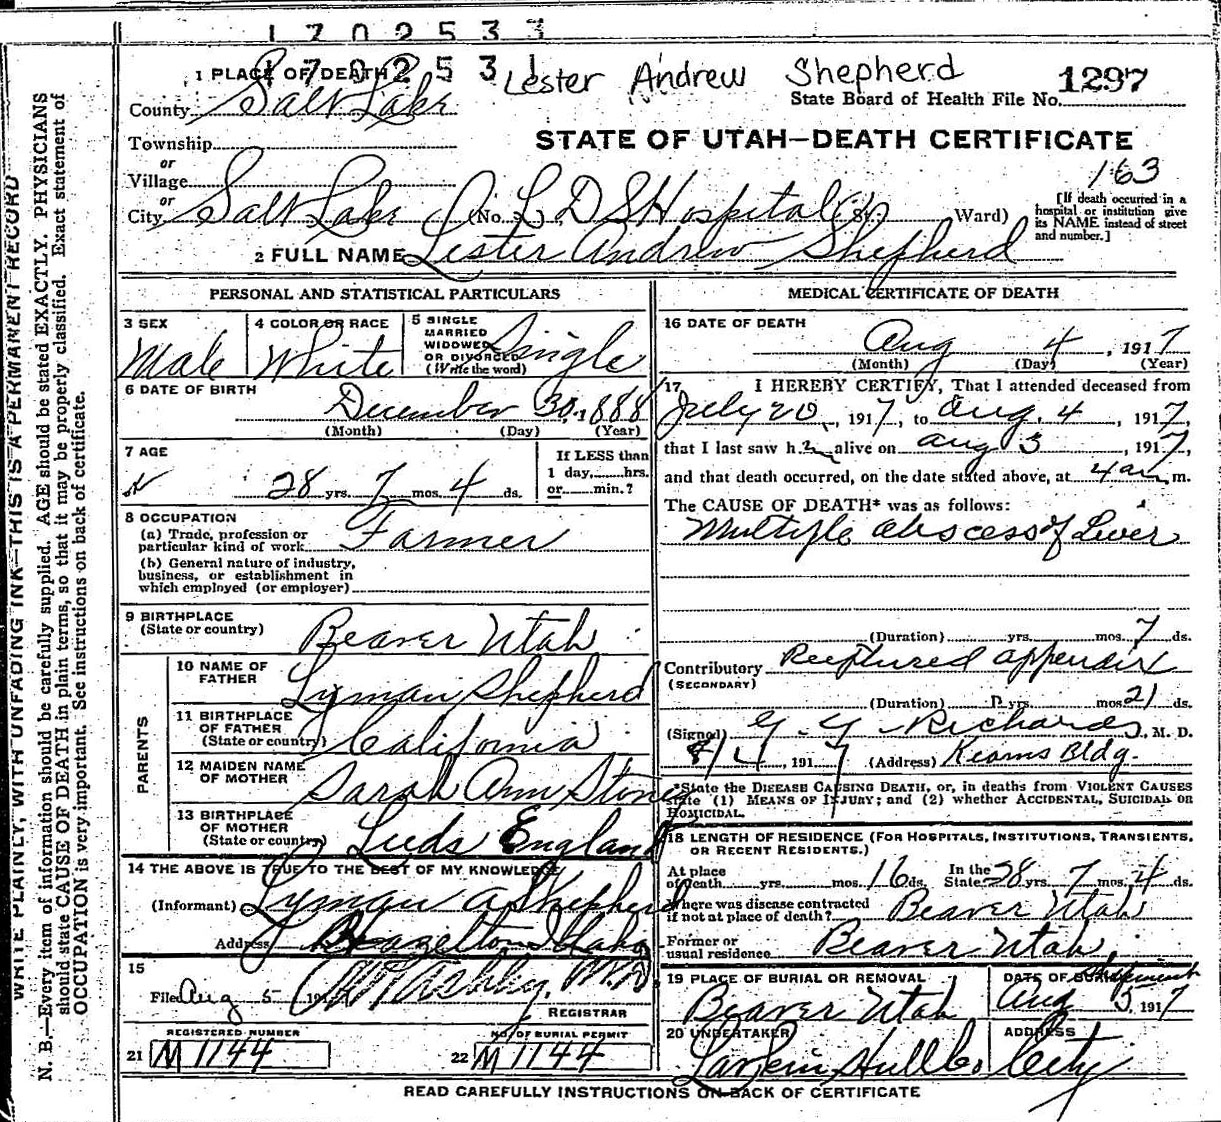 1702533
1 PLACE OF DEATH 1702531 Lester Andrew Shepherd
County Salt Lake State Board of Health File No. 1297
Township
or
STATE OF UTAH—DEATH CERTIFICATE
Village
or
163
City Salt Lake (No. L D S Hospital St. Ward)
[If death occurred in a hospital or institution give its NAME instead of street and number.]
2 FULL NAME Lester Andrew Shepherd
PERSONAL AND STATISTICAL PARTICULARS
3 SEX Male
4 COLOR OR RACE White
5 SINGLE MARRIED WIDOWED OR DIVORCED (Write the word) Single
6 DATE OF BIRTH
December 30, 1888
(Month) (Day) (Year)
7 AGE
28 yrs. 7 mos. 4 ds.
If LESS than 1 day, hrs. or min.?
8 OCCUPATION
(a) Trade, profession or particular kind of work Farmer
(b) General nature of industry, business, or establishment in which employed (or employer)
9 BIRTHPLACE
(State or country) Beaver Utah
PARENTS
10 NAME OF FATHER Lyman Shepherd
11 BIRTHPLACE OF FATHER (State or country) California
12 MAIDEN NAME OF MOTHER Sarah Ann Stones
13 BIRTHPLACE OF MOTHER (State or country) Leeds England
14 THE ABOVE IS TRUE TO THE BEST OF MY KNOWLEDGE
(Informant) Lyman A Shepherd
Address Hazelton Idaho
15
Filed Aug 5 191 Ashley, M.D.
REGISTRAR
REGISTERED NUMBER
21 M 1144
NO. OF BURIAL PERMIT
22 M 1144
MEDICAL CERTIFICATE OF DEATH
16 DATE OF DEATH
Aug 4, 1917
(Month) (Day) (Year)
17 I HEREBY CERTIFY, That I attended deceased from
July 20, 1917, to Aug. 4, 1917,
that I last saw h alive on Aug 3, 1917,
and that death occurred, on the date stated above, at 4 am m.
The CAUSE OF DEATH* was as follows:
Multiple abscess of Liver
(Duration) yrs. mos. 7 ds.
Contributory Ruptured appendix
(SECONDARY)
(Duration) yrs. mos. 21 ds.
(Signed) G. G. Richards, M. D.
8/4, 1917 (Address) Kearns Bldg.
*State the DISEASE CAUSING DEATH, or, in deaths from VIOLENT CAUSES
state (1) MEANS OF INJURY; and (2) whether ACCIDENTAL, SUICIDAL OR
HOMICIDAL.
18 LENGTH OF RESIDENCE (FOR HOSPITALS, INSTITUTIONS, TRANSIENTS,
OR RECENT RESIDENTS.)
At place of death yrs. mos. 16 ds. In the State 28 yrs. 7 mos. 4 ds.
Where was disease contracted if not at place of death? Beaver Utah
Former or usual residence Beaver Utah
19 PLACE OF BURIAL OR REMOVAL Beaver Utah
DATE OF BURIAL Shipment Aug 5, 1917
20 UNDERTAKER
ADDRESS City
READ CAREFULLY INSTRUCTIONS ON BACK OF CERTIFICATE
WRITE PLAINLY, WITH UNFADING INK—THIS IS A PERMANENT RECORD
N. B.—Every item of information should be carefully supplied. AGE should be stated EXACTLY. PHYSICIANS
should state CAUSE OF DEATH in plain terms, so that it may be properly classified. Exact statement of
OCCUPATION is very important. See instructions on back of certificate.